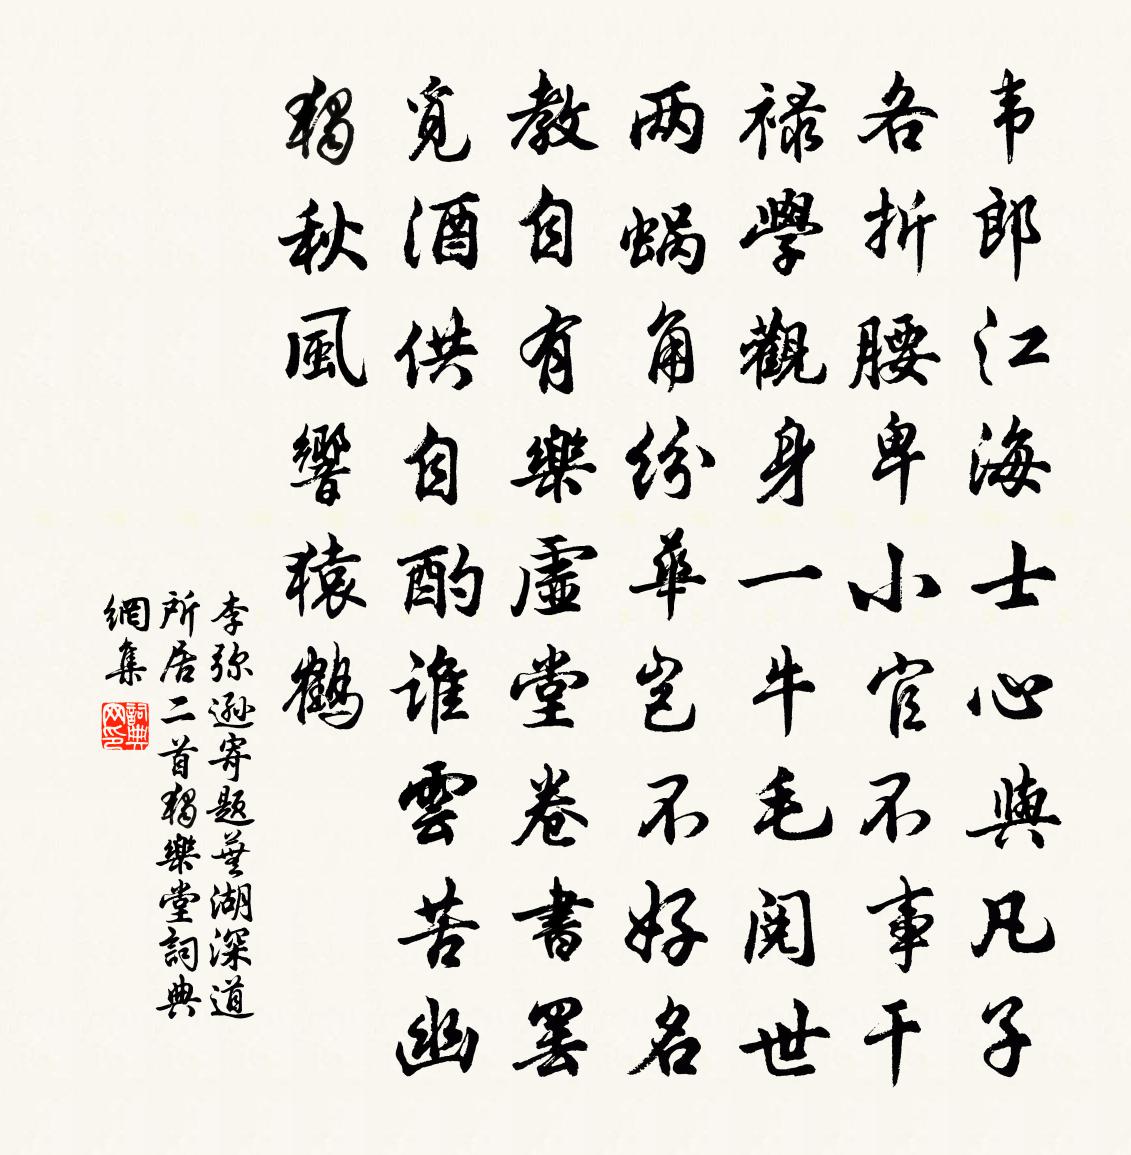 韦郎江海士心與凡子
各折腰卑小官不事干
禄學觀身一牛毛阅世
两蜗角纷華岂不好名
教自有樂虚堂卷書罢
觅酒供自酌谁雲苦幽
獨秋風響猿鶴
李弥遜寄题蕪湖深道
所居二首獨樂堂詞典
網集
詞典网印